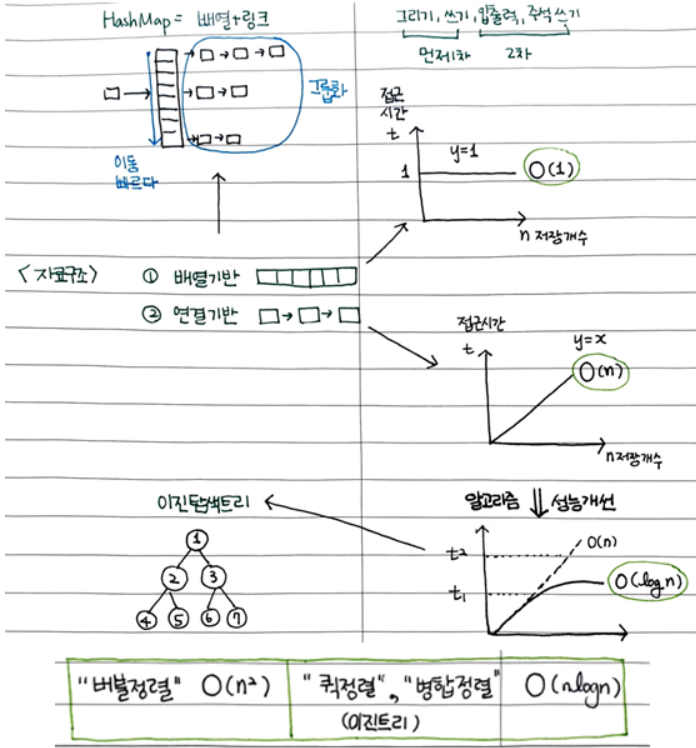 HashMap = 배열+링크
그리기, 쓰기, 입출력, 주석쓰기
먼저1차 2차
그룹화
이동
빠르다
접근
시간
t
y=1
1
O(1)
n 저장개수
<자료구조> ① 배열기반
② 연결기반
접근시간
t
y=x
O(n)
n 저장개수
이진탐색트리
알고리즘 성능개선
1
2 3
4 5 6 7
t2
O(n)
t1
O(logn)
"버블정렬" O(n²) "퀵정렬", "병합정렬" O(nlogn)
(이진트리)